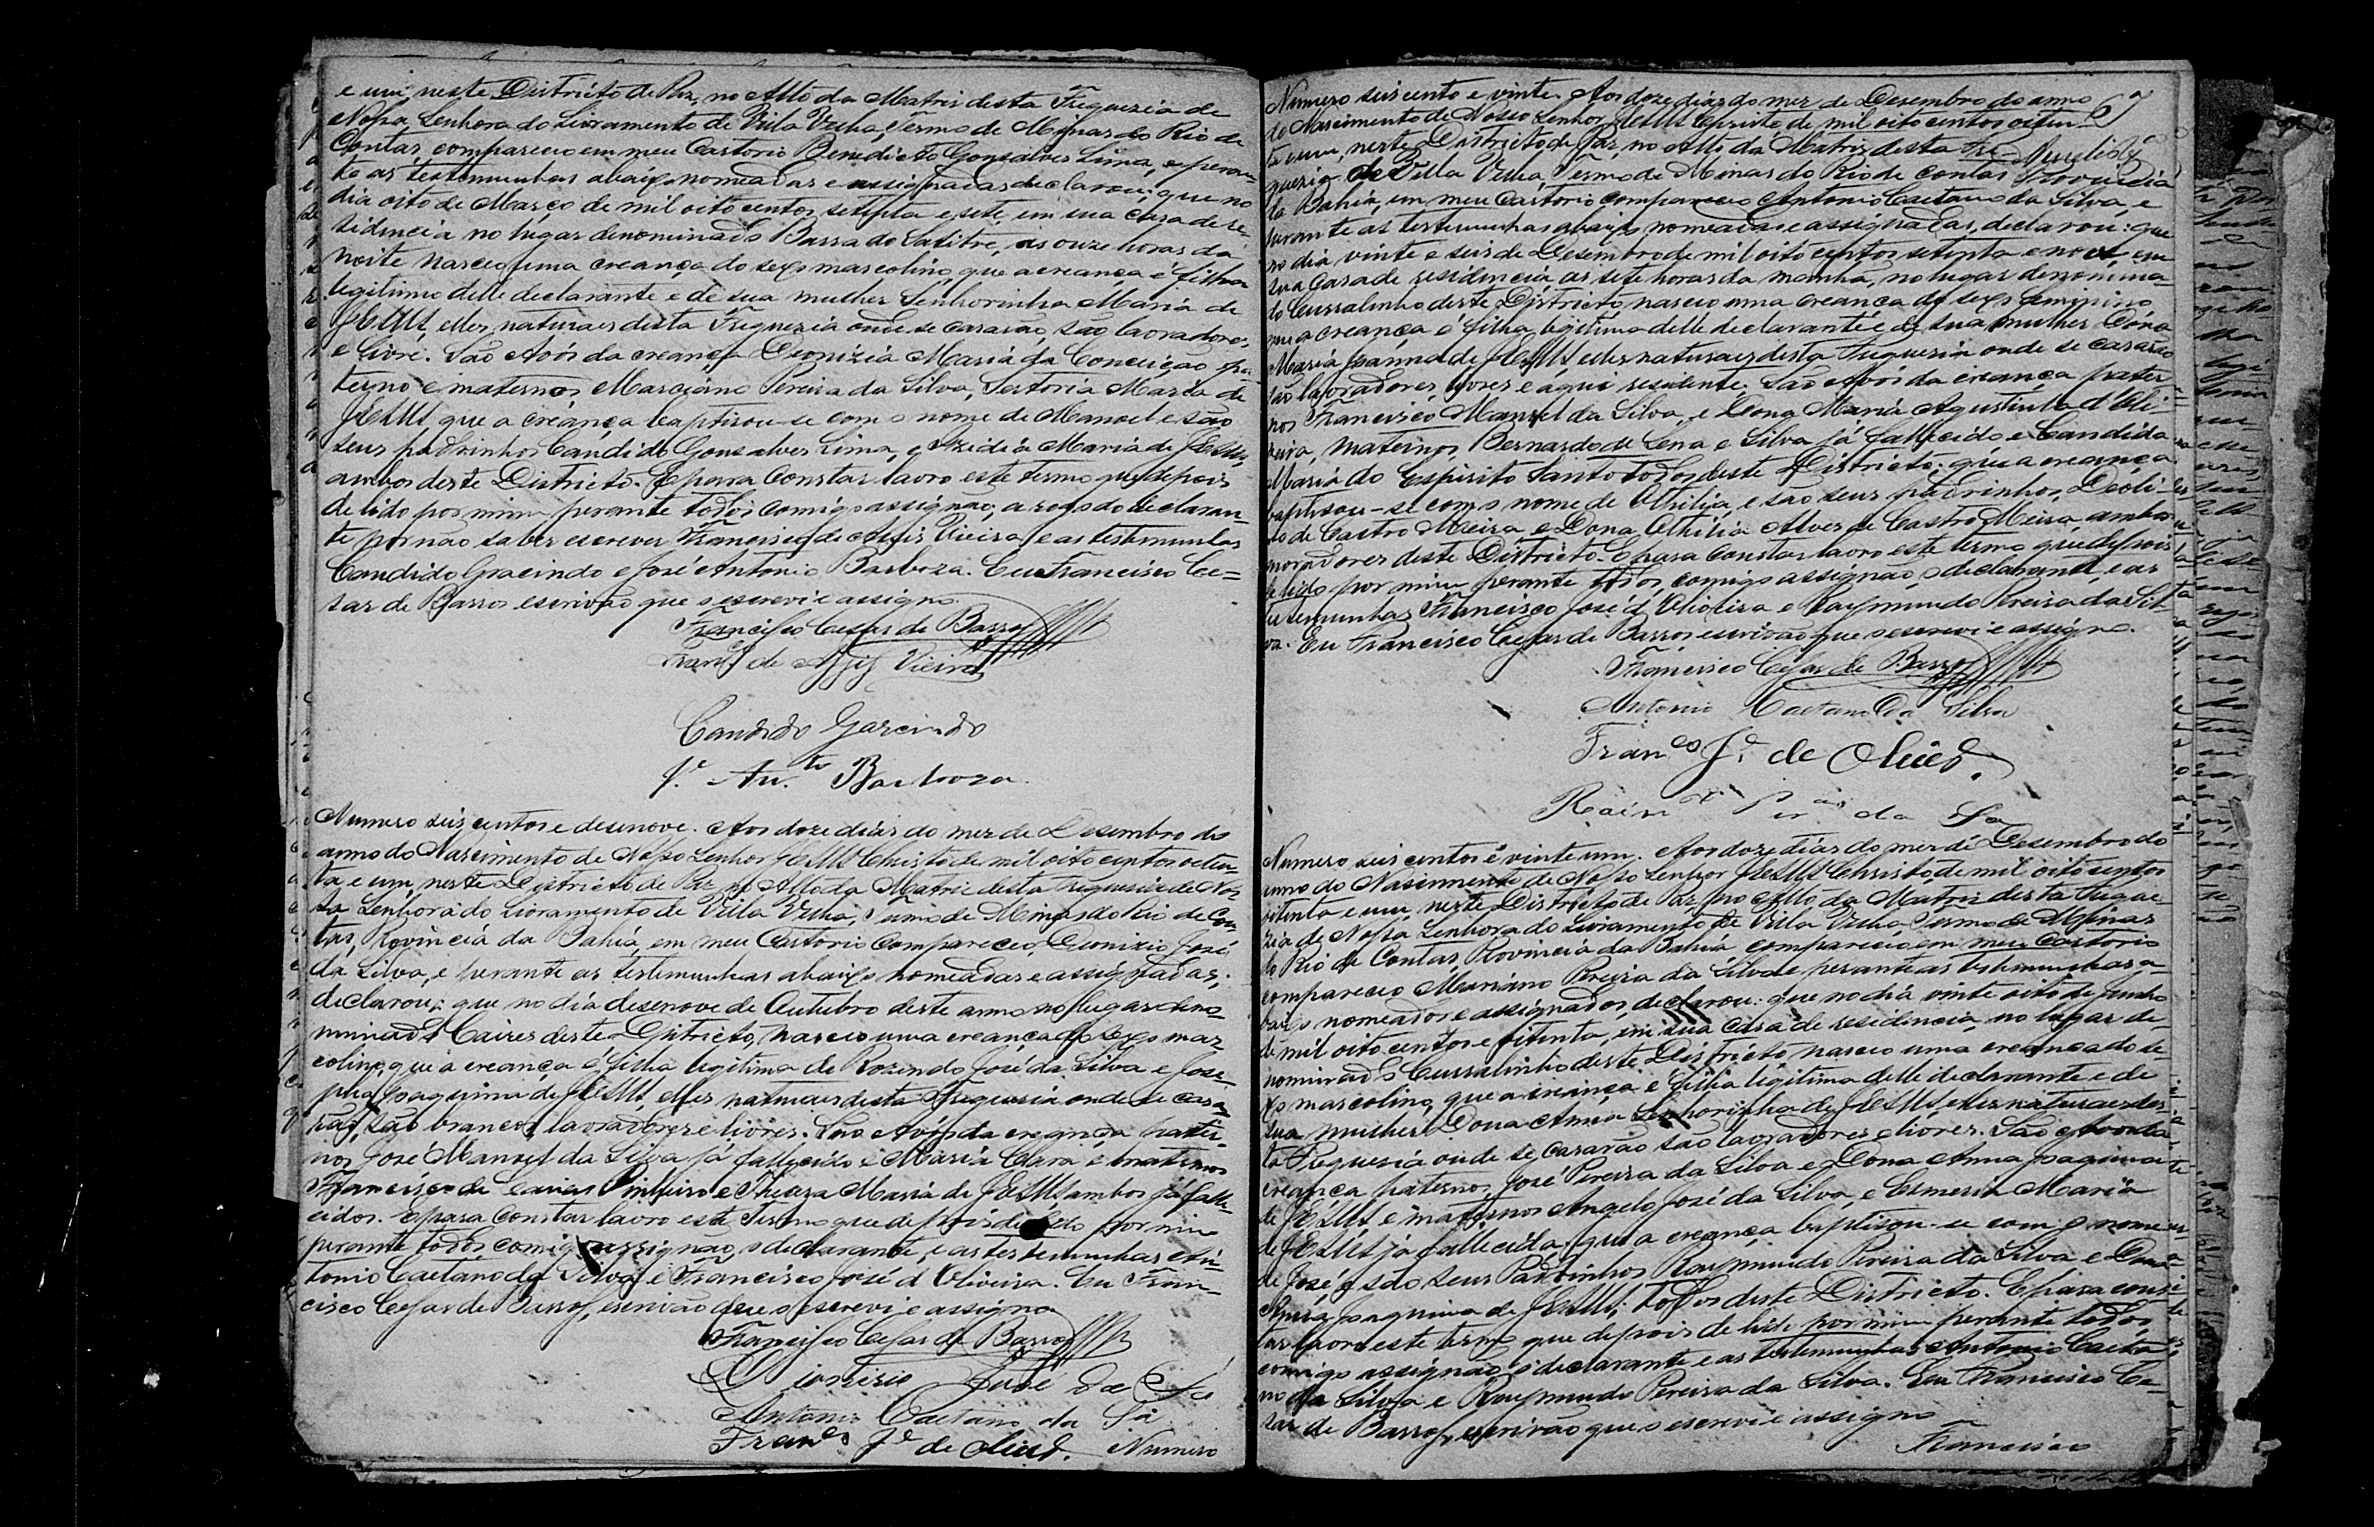 e um, neste Districto de Paz, no Alto da Matris desta Freguezia de
Nossa Senhora do Livramento de Villa Velha, Termo de Minas do Rio de
Contas, compareceo em meu Cartorio Benedicto Gonsalves Lima, e peran-
te as testemunhas abaixo nomeadas e assignadas declarou; que no
dia oito de Março de mil oito centos setenta e sete, em sua casa de re-
sidencia no lugar denominado Barra do Salitre, as onze horas da
noite nasceo uma creança do sexo mascolino, que a creança é filho
legitimo delle declarante e de sua mulher Senhorinha Maria de
JESUS, elles naturaes desta Freguezia onde se casarão, são lavradores,
e livre. São Avós da creança Dionizia Maria da Conceição pa-
terno e maternos Marciano Pereira da Silva, Sertoria Maria de
JESUS, que a creança baptisou-se com o nome de Manoel e são
seus padrinhos Candido Gonsalves Lima, e Maria de JESUS,
ambos deste Districto. E para constar lavro este termo que depois
de lido por mim perante todos comigo assignão, a rogo do declaran-
te por não saber escrever Francisco de Assis Vieira, e as testemunhas
Candido Gracindo e José Antonio Barboza. Eu Francisco Ce=
sar de Barros escrivão que o escrevi e assigno.
Francisco Cesar de Barros
Franco de Assis Vieira
Candido Garcindo
Je Anto Barboza
Numero seis centos e desenove. Aos doze dias do mez de Desembro do
anno do Nascimento de Nosso Senhor JESUS Christo de mil oito centos oiten-
ta e um, neste Districto de Paz no Alto da Matriz desta Freguezia de Nos-
sa Senhora do Livramento de Villa Velha, Termo de Minas do Rio de Con-
tas, Provincia da Bahia, em meu Cartorio compareceo Dionizio José
da Silva, e perante as testemunhas abaixo nomeadas e assignadas,
declarou: que no dia desenove de Outubro deste anno no lugar deno-
minado Caires deste Districto, nasceo uma creança do sexo mas-
colino, que a creança é filha legitima de Rozendo José da Silva e Jose-
pha Joaquina de JESUS, elles naturaes desta Freguesia onde se casa-
rão, são brancos, lavradores e livres. São Avós da creança pater-
nos José Manoel da Silva já fallecido e Maria Clara e maternos
Francisco de Pinheiro e Thereza Maria de JESUS ambos já falle-
cidos. E para constar lavro este Termo que depois de lido por mim
perante todos comigo assignão, o declarante, e as testemunhas An-
tonio Caetano da Silva, e Francisco José d'Oliveira. Eu Fran-
cisco Cesar de Barros, escrivão que o escrevi e assigno
Francisco Cesar de Barros
Dionizio José da Sa
Antonio Caetano da Sa
Franco Je de Olivra. Numero
67
Numero seis cento e vinte. Aos doze dias do mez de Desembro do anno
do Nascimento de Nosso Senhor JESUS Christo de mil oito centos oiten-
ta e um, neste Districto de Paz, no Alto da Matriz desta Fre-
guezia de Villa Velha, Termo de Minas do Rio de Contas Provincia
da Bahia, em meu Cartorio compareceo Antonio Caetano da Silva, e
perante as testemunhas abaixo nomeadas e assignadas, declarou: que
no dia vinte e seis de Desembro de mil oito centos setenta e nove em
sua casa de residencia, as sete horas da manhã, no lugar denomina-
do Curralinho deste Districto, nasceo uma creança do sexo feminino
que a creança é filha legitima delle declarante e de sua mulher Dona
Maria Joanna de JESUS elles naturaes desta Freguezia onde se casarão
são lavradores, livres e aqui residente. São Avós da creança pater-
nos Francisco Manoel da Silva, e Dona Maria Agustinha d'Oli-
veira, maternos Bernardo de Sena e Silva já fallecido e Candida
Maria do Espirito Santo todos deste Districto: que a creança
baptisou-se com o nome de Othilia, e são seus padrinhos, Deoli-
do de Castro Meira, e Dona Othilia Alves de Castro Meira, ambos
moradores deste Districto. E para constar lavro este termo que depois
de lido por mim perante todos, comigo assignão, o declarante, e as
testemunhas Francisco José d'Oliveira e Raymundo Pereira da Sil-
va. Eu Francisco Cesar de Barros escrivão que o escrevi e assigno.
Francisco Cesar de Barros
Antonio Caetano da Silva
Franco Je de Olivra.
Raimdo Pera da Sa
Numero seis centos e vinte um. Aos doze dias do mez de Desembro do
anno do Nascimento de Nosso Senhor JESUS Christo, de mil oito centos
oitenta e um, neste Districto de Paz, no Alto da Matriz desta Fregue-
zia de Nossa Senhora do Livramento de Villa Velha Termo de Minas
do Rio de Contas, Provincia da Bahia compareceo em meu Cartorio
compareceo Mariano Pereira da Silva e perante as testemunhas a-
baixo nomeados e assignados, declarou: que no dia vinte oito de Junho
de mil oito centos e setenta, em sua casa de residencia, no lugar de-
nominado Curralinho deste Districto, nasceo uma creança do se-
xo mascolino, que a criança é filha legitima delle declarante e de
sua mulher Dona Anna Senhorinha de JESUS elles naturaes des-
ta Freguesia onde se casarão são lavradores e livres. São Avós da
creança paternos, José Pereira da Silva e Dona Anna Joaquina
de JESUS e maternos Angelo José da Silva, e Esmeria Maria
de JESUS já fallecida, que a creança baptisou-se com o nome
de José e são seus Padrinhos Raymundo Pereira da Silva e Dona
Maria Joaquina de JESUS; todos deste Districto. E para cons-
tar lavro este termo que depois de lido por mim perante todos,
comigo assignão o declarante e as testemunhas Antonio Caeta-
no da Silva e Raymundo Pereira da Silva. Eu Francisco Ce-
sar de Barros, escrivão que o escrevi e assigno
Francisco